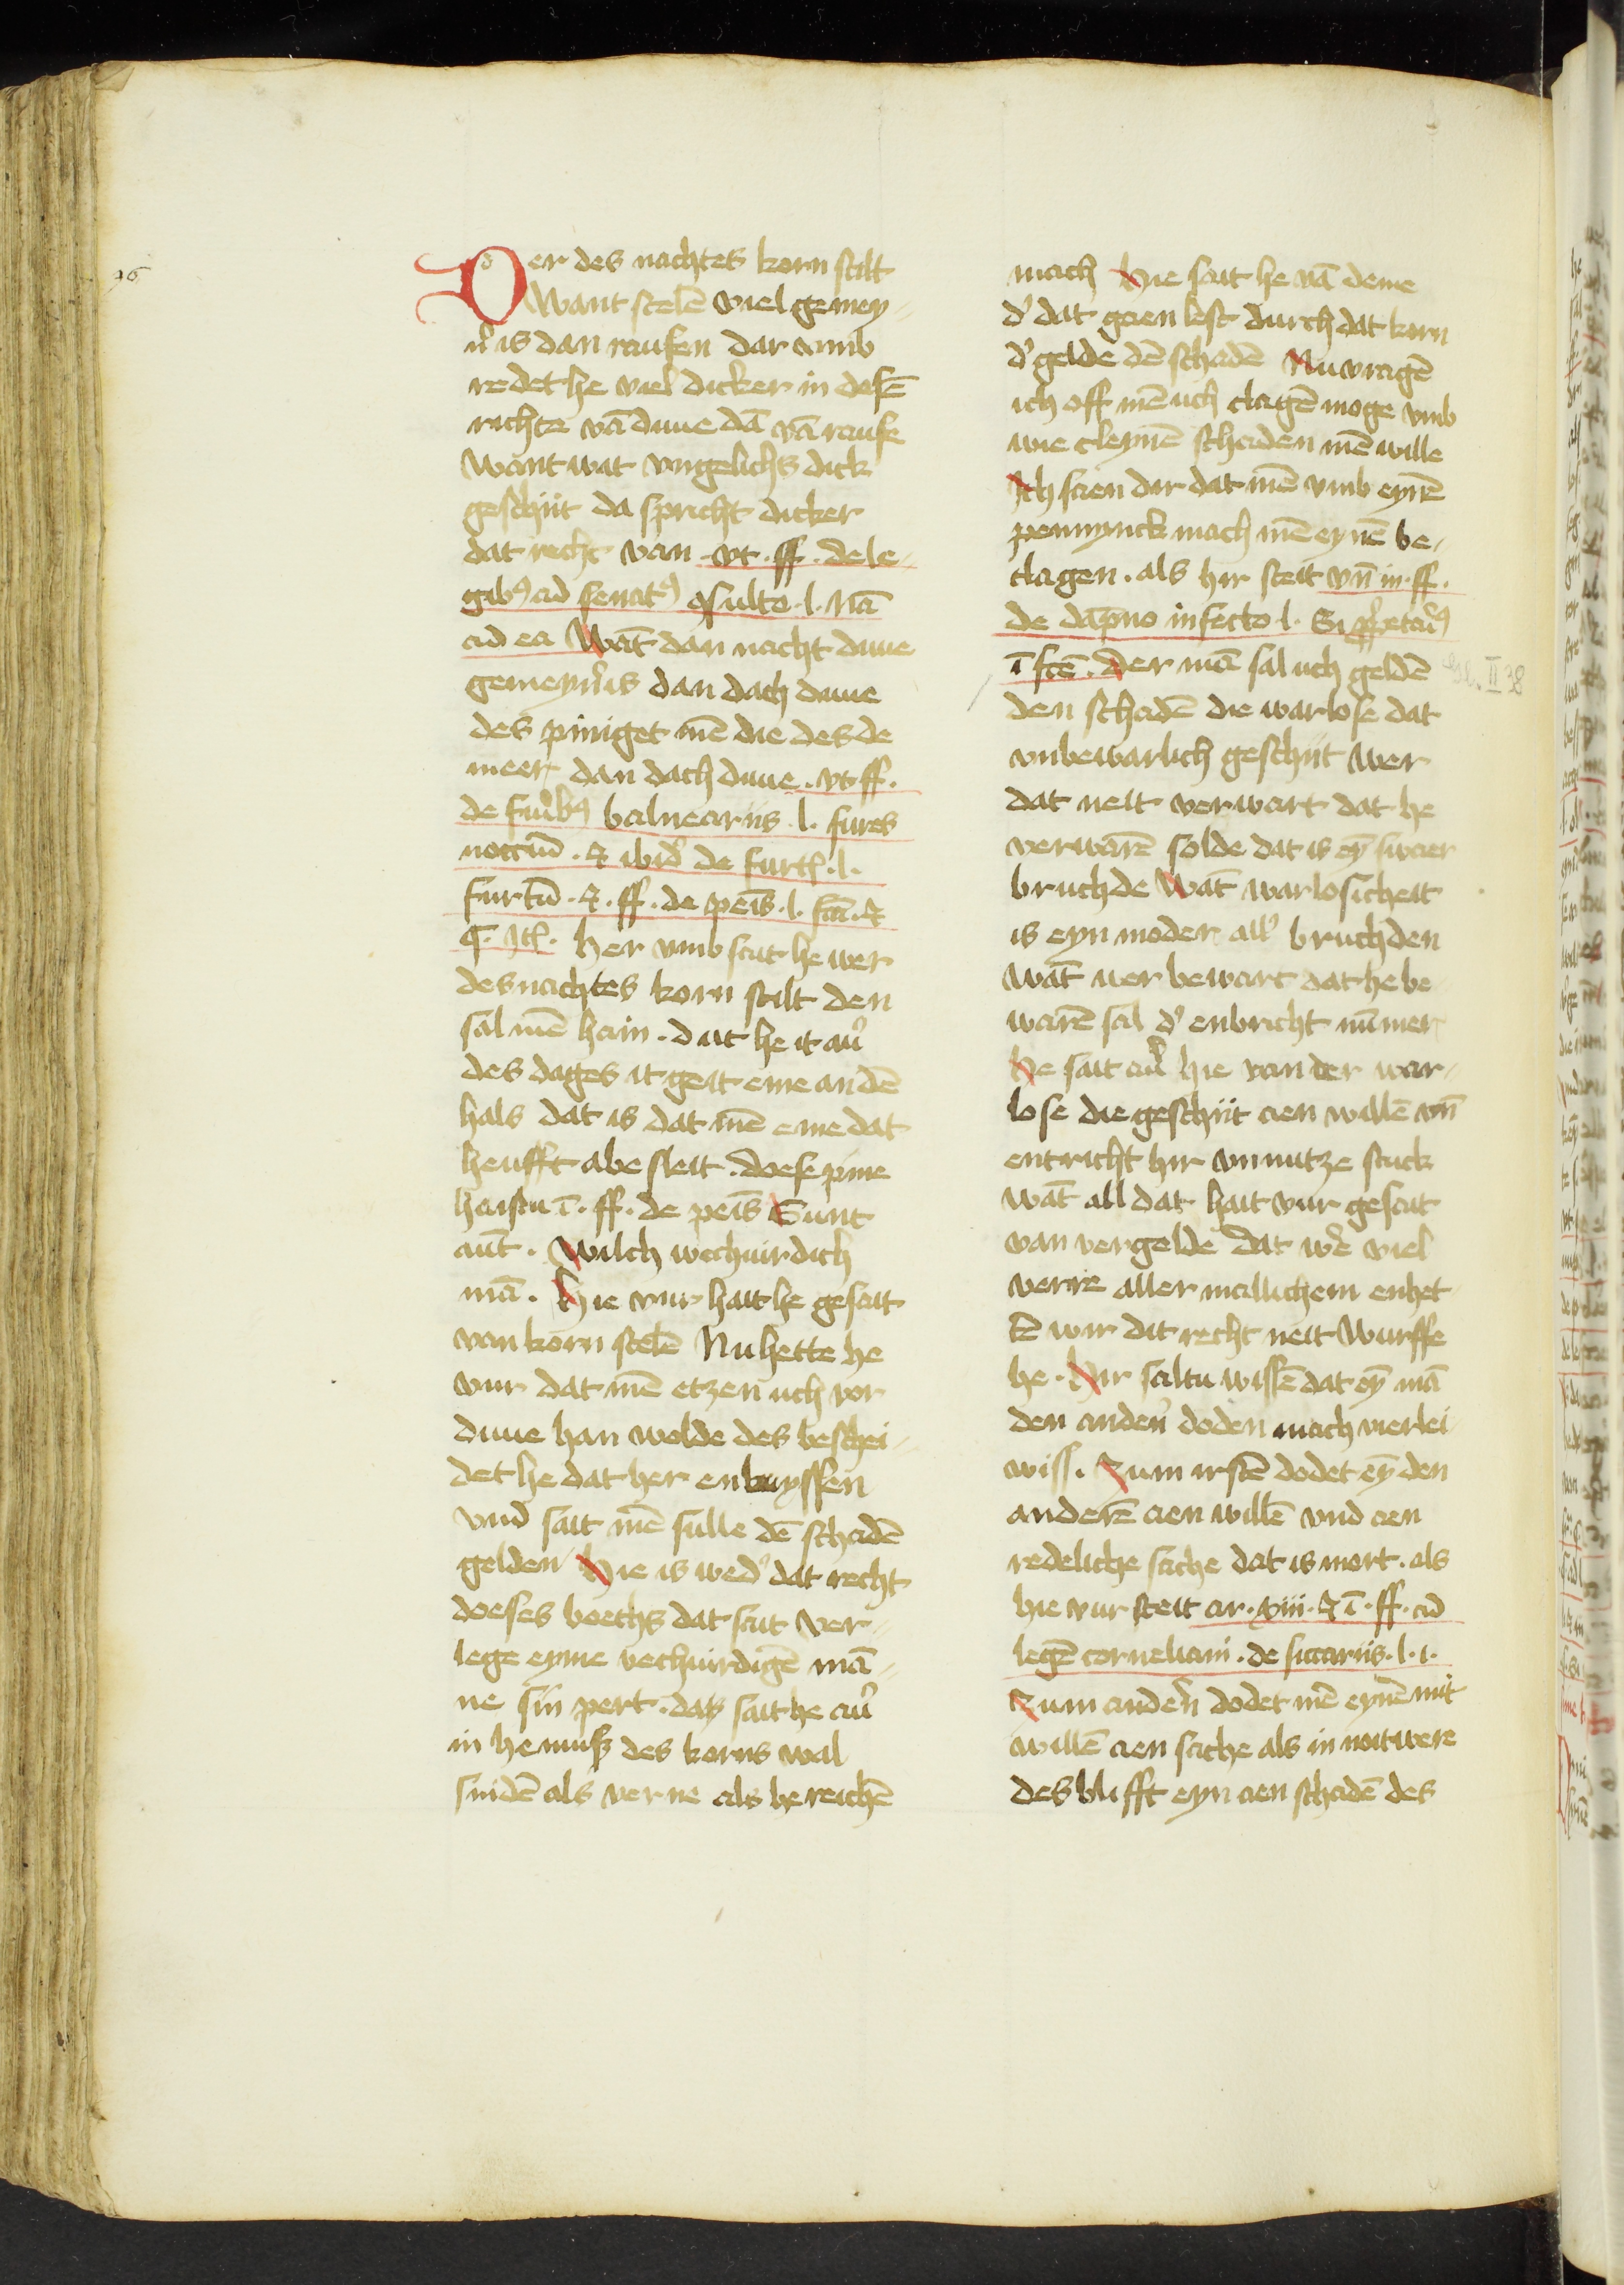 96
Der des nachtes korn stilt
Want stelē viel gemey-
ṅ is dan raufen dar vmb
redet he viel dicker in desē
richte vā duue dā vā raufe
Want wat vngelichs dick
geschiit da spricht dicker
dat recht van · vt · ff · de le-
gibꝰ ad senatꝰ ꝯsulto · l · Nā
ad ea Wāt dan nacht duue
gemeynˀ is dan dach duue
des piniget mē die des de
meer dan dach duue · vt ff ·
de furibꝰ balneariis · l · fures
nocturnū · ⁊ ibid de furtꝭ · l ·
furtū · ⁊ · ff · de penis · l · · ⁊
¶ · Itē · her vmb sait he wer
des nachtes korn stilt den
sal mē hain · dut he it auˀ
des dages it geit eme an dē
hals dat is dat mē eme dat
heufft abe sleit · doese pine
haistu ī · ff · de penis Sunt
aut · Wilch wechuirdich
mā · Hie vur hait he gesait
van korn stelē Nu hette he
vur dat mē etzen uch vor
duue han wolde des beschei-
det he dat her enbuyssen
vnd sait mē sulle dē schadē
gelden Hie is wedˀ dat recht
doeses boechs dat sait ver-
lege eyme vechuirdigē mā-
ne sin pert · datz sait he auˀ
in he muß des korns wal
snidē als verne als he reichē
mach Hie sait he vā deme
dˀ dat gaen lest durch dat korn
dˀ gelde dē schadē Nu vragē
ich off mē uch clagē moge vmb
wie cleynē schaden mē wille
Ich saen dir dat mē vmb eynē
pennynck mach mē eynē be-
clagen · als hir steit vn̄ in · ff ·
de dāpno infecto l · Si
ī · Der mā sal uch geldē
den schadē die warlose dat
vnbewarlich geschiit Wer
dat neit verwart dat he
verwarē solde dat is ey̅ swaer
bruchde Wāt warlosicheit
is eyn moder allˀ bruchden
Wāt wer bewart dat he be-
warē sal dˀ enbricht nūmer
He sait auˀ hie van der war-
lose die geschiit aen willē vn̄
entricht hir vnnutze stuck
Wāt all dat hait vur gesait
van vergelde dat wˀe viel
verre aller mallichem enhet
E wir dit recht neit Wurffe
he · Hir saltu wissē dat ey̅ mā
den andeˀn doden mach vierlei
wiss · Zum irstē dodet ey̅ den
anderē aen willē vnd aen
redeliche sache dat is mort · als
hie vur steit ar · xiii · ⁊ ī · ff · ad
legē corneliam · de siccariis · l · 1 ·
Zum andeˀn dodet mē eynē mit
willē aen sache als in noitwere
des blifft eyn aen schadē des
II 38